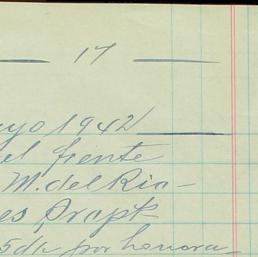 — 17 —
yo 1942
el frente
M. del Rio -
es Propt
5 dh por honora